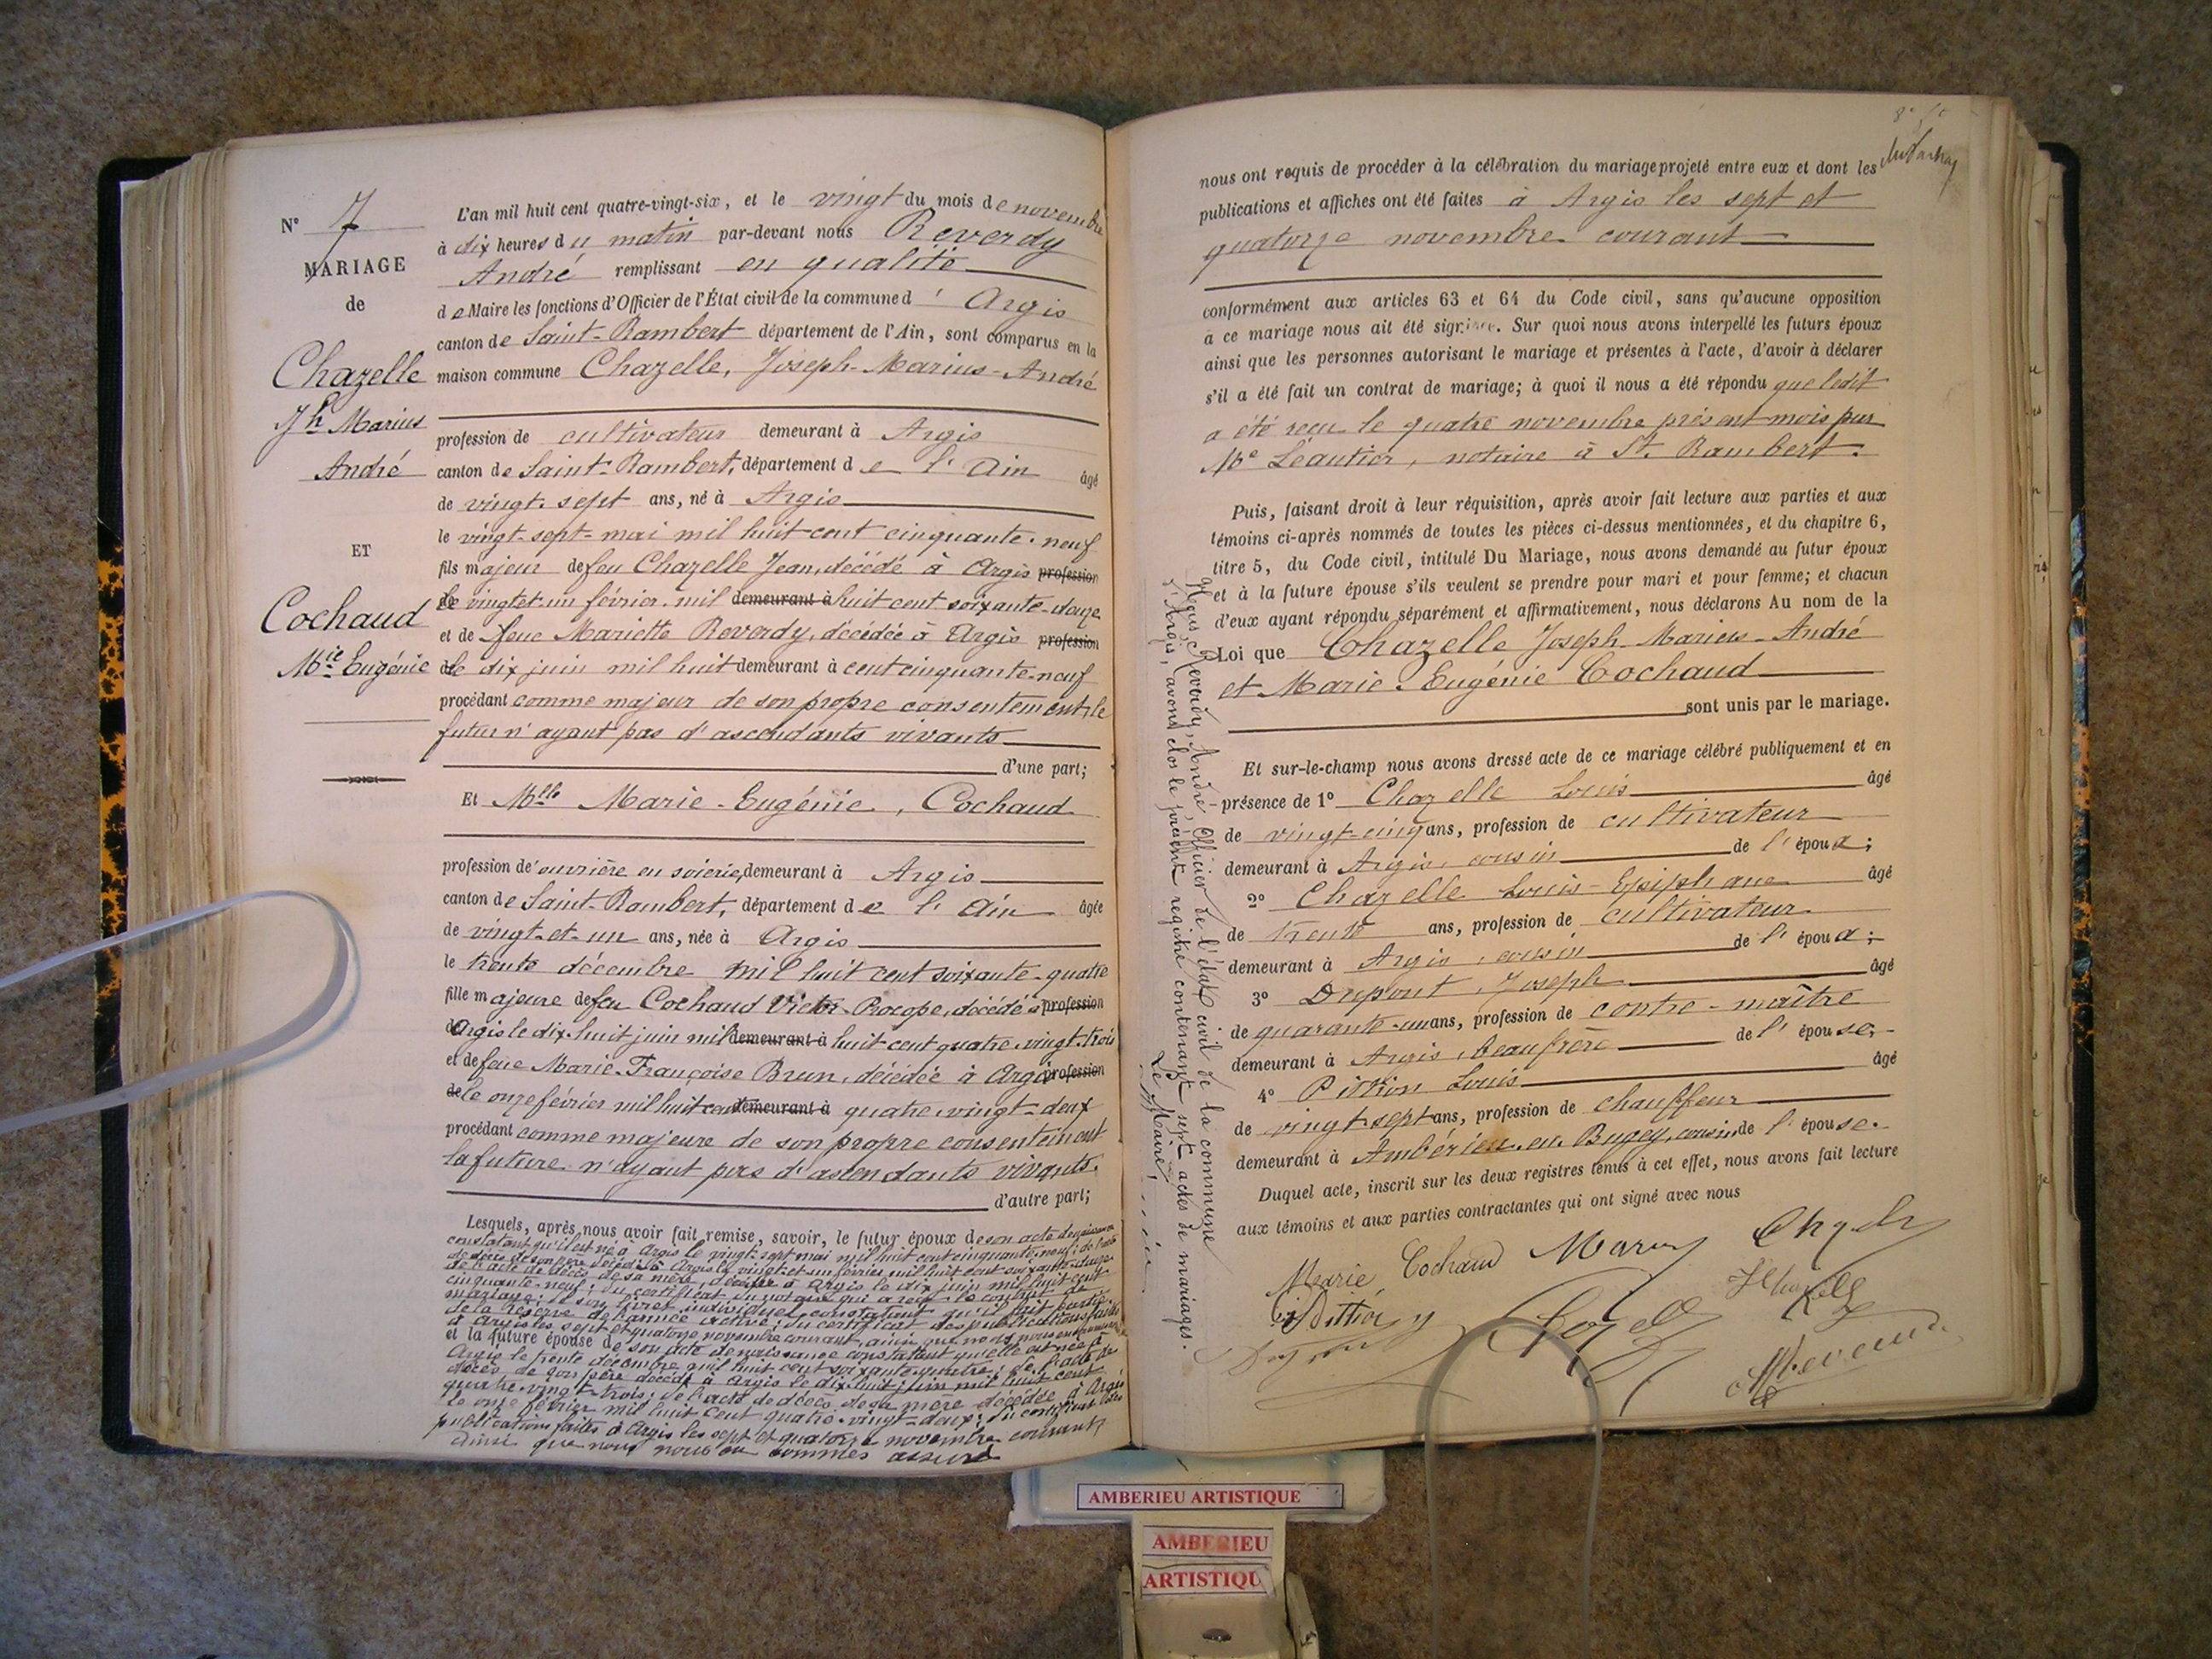 N° 7
MARIAGE
de
Chazelle
Jh Marius
André
ET
Cochaud
Mie Eugénie
L'an mil huit cent quatre-vingt-six, et le vingt du mois de novembre
à dix heures du matin par-devant nous Reverdy
André remplissant en qualité
de Maire les fonctions d'Officier de l'État civil de la commune d'Argis
canton de Saint-Rambert département de l'Ain, sont comparus en la
maison commune Chazelle, Joseph-Marius-André
profession de cultivateur demeurant à Argis
canton de Saint-Rambert, département de l'Ain âgé
de vingt-sept ans, né à Argis
le vingt-sept mai mil huit-cent cinquante-neuf
fils majeur de feu Chazelle Jean, décédé à Argis profession
de le vingt et-un février mil demeurant à huit cent soixante-douze
et de feue Mariette Reverdy, décédée à Argis profession
de le dix juin mil huit demeurant à cent cinquante-neuf
procédant comme majeur de son propre consentement, le
futur n'ayant pas d'ascendants vivants
d'une part;
Et Mlle Marie-Eugénie, Cochaud
profession d'ouvrière en soierie, demeurant à Argis
canton de Saint-Rambert, département de l'Ain âgée
de vingt-et-un ans, née à Argis
le trente décembre mil huit cent soixante-quatre
fille majeure de feu Cochaud Victor-Procope, décédé à profession
d'Argis le dix-huit juin mil demeurant à huit cent quatre-vingt-trois
et de feue Marie-Françoise Brun, décédée à Argis profession
de le onze février mil huit cent demeurant à quatre-vingt-deux
procédant comme majeure de son propre consentement
la future n'ayant pas d'ascendants vivants.
d'autre part;
Lesquels, après nous avoir fait remise, savoir, le futur époux de son acte de naissance
constatant qu'il est né à Argis le vingt-sept mai mil huit cent cinquante-neuf; de l'acte
de décès de son père décédé à Argis le vingt-et-un février mil huit cent soixante-douze
de l'acte de décès de sa mère, décédée à Argis le dix juin mil huit cent
cinquante-neuf; du certificat du notaire qui a reçu le contrat de
mariage; de son livret individuel constatant qu'il fait partie
de la réserve de l'armée active; du certificat des publications faites
à Argis les sept et quatorze novembre courant, ainsi que nous nous en sommes
et la future épouse de son acte de naissance constatant qu'elle est née à
Argis le trente décembre mil huit cent soixante-quatre; de l'acte de
décès de son père décédé à Argis le dix-huit juin mil huit cent
quatre-vingt-trois; de l'acte de décès de sa mère décédée à Argis
le onze février mil huit cent quatre-vingt-deux; du certificat des
publications faites à Argis les sept et quatorze novembre courant
ainsi que nous nous en sommes assuré
nous ont requis de procéder à la célébration du mariage projeté entre eux et dont les
publications et affiches ont été faites à Argis les sept et
quatorze novembre courant
conformément aux articles 63 et 64 du Code civil, sans qu'aucune opposition
à ce mariage nous ait été signifiée. Sur quoi nous avons interpellé les futurs époux
ainsi que les personnes autorisant le mariage et présentes à l'acte, d'avoir à déclarer
s'il a été fait un contrat de mariage; à quoi il nous a été répondu que ledit
a été reçu le quatre novembre présent mois par
Me Léautier, notaire à St. Rambert.
Puis, faisant droit à leur réquisition, après avoir fait lecture aux parties et aux
témoins ci-après nommés de toutes les pièces ci-dessus mentionnées, et du chapitre 6,
titre 5, du Code civil, intitulé Du Mariage, nous avons demandé au futur époux
et à la future épouse s'ils veulent se prendre pour mari et pour femme; et chacun
d'eux ayant répondu séparément et affirmativement, nous déclarons Au nom de la
Loi que Chazelle Joseph-Marius-André
et Marie-Eugénie Cochaud
sont unis par le mariage.
Et sur-le-champ nous avons dressé acte de ce mariage célébré publiquement et en
présence de 1° Chazelle Louis âgé
de vingt-cinq ans, profession de cultivateur
demeurant à Argis, cousin de l'époux;
2° Chazelle Louis-Epiphane âgé
de trente ans, profession de cultivateur
demeurant à Argis, cousin de l'époux;
3° Dupont, Joseph âgé
de quarante-un ans, profession de contre-maître
demeurant à Argis, beau frère de l'épouse,
4° Pittion Louis âgé
de vingt-sept ans, profession de chauffeur
demeurant à Ambérieu-en-Bugey, cousin de l'épouse.
Duquel acte, inscrit sur les deux registres tenus à cet effet, nous avons fait lecture
aux témoins et aux parties contractantes qui ont signé avec nous
Marie Cochaud
Pittion
Nous, Reverdy, André, Officier de l'état civil de la commune
d'Argis, avons clos le présent registre contenant sept actes de mariages.
Le Maire,
AMBERIEU ARTISTIQUE
AMBERIEU
ARTISTIQU